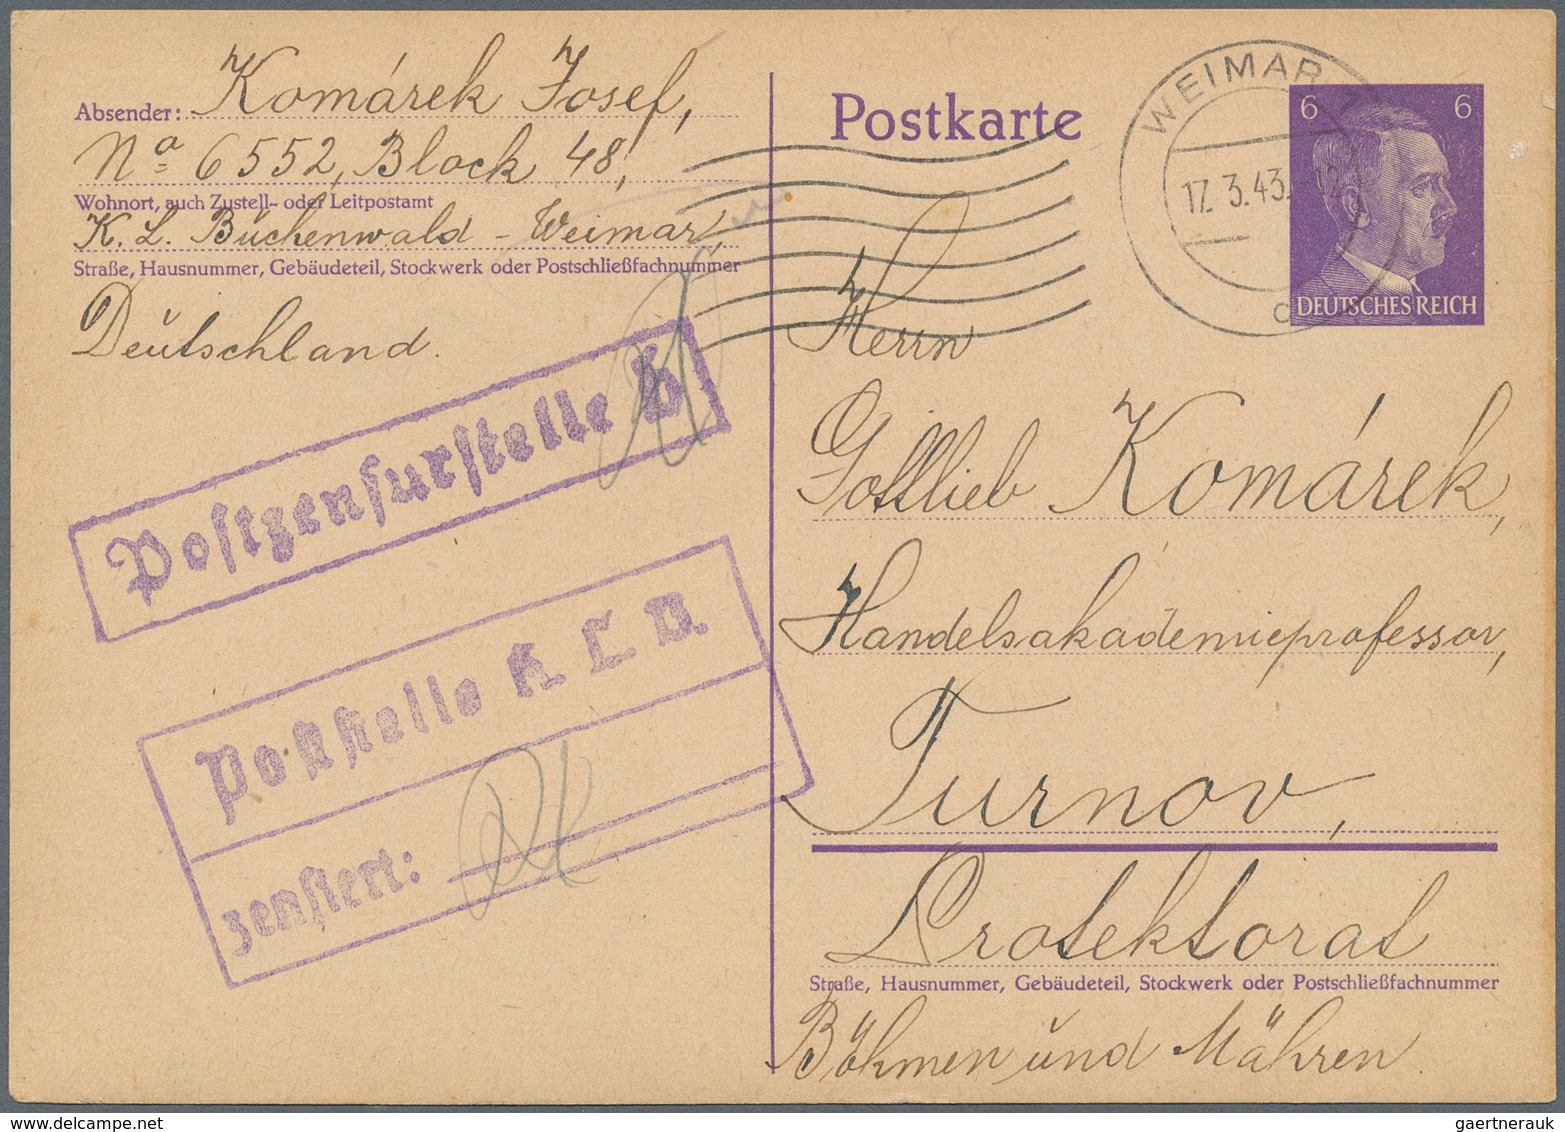 Absender: Komárek Josef,
Nº 6552, Block 48,
Wohnort, auch Zustell- oder Leitpostamt
K. L. Buchenwald - Weimar,
Straße, Hausnummer, Gebäudeteil, Stockwerk oder Postschließfachnummer
Deutschland.
Postzensurstelle b
Poststelle K. L. B.
zensiert:
Postkarte
WEIMAR 1
17.3.43. 12
6 6
DEUTSCHES REICH
Herrn
Gottlieb Komárek,
Handelsakademieprofessor,
Turnov,
Protektorat
Straße, Hausnummer, Gebäudeteil, Stockwerk oder Postschließfachnummer
Böhmen und Mähren.
gaertnerauk